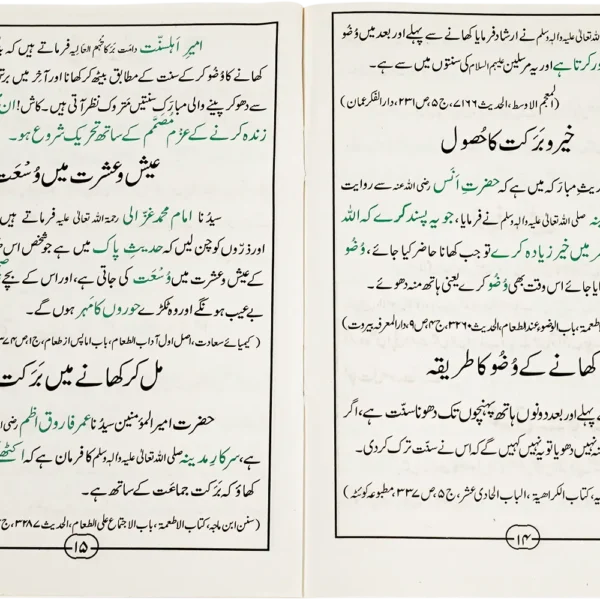 اللہ تعالیٰ علیہ والہٖ وسلم نے ارشاد فرمایا کھانے سے پہلے اور بعد میں وُضُو
دور کرتا ہے اور یہ مرسلین علیہم السلام کی سنتوں میں سے ہے۔
(المعجم الاوسط، الحدیث ۷۱۶۶، ج۵، ص ۲۳۱، دار الفکر عمان)
خیر و بَرَکت کا حُصول
حدیثِ مبارَکہ میں ہے کہ حضرتِ اَنَس رضی اللہ عنہ سے روایت
صلی اللہ تعالیٰ علیہ والہٖ وسلم نے فرمایا، جو یہ پسند کرے کہ اللہ
میں خیر زیادہ کرے تو جب کھانا حاضر کیا جائے، وُضُو
جائے اس وقت بھی وُضُو کرے یعنی ہاتھ منہ دھوئے۔
باب الوضوء عند الطعام، الحدیث ۳۲۶۰، ج۴، ص۹، دار المعرفہ بیروت)
کھانے کے وُضُو کا طریقہ
پہلے اور بعد دونوں ہاتھ پہنچوں تک دھونا سنّت ہے، اگر
نہ دھویا تو یہ نہیں کہیں گے کہ اس نے سنّت ترک کر دی۔
کتاب الکراھیۃ، الباب الحادی عشر، ج۵، ص ۳۳۷، مطبوعہ کوئٹہ)
۱۴
امیرِ اَہلسنّت دامت بَرَکاتُہم العالیہ فرماتے ہیں کہ
کھانے کا وُضُو کر کے سنت کے مطابق بیٹھ کر کھانا اور آخر میں برتن
سے دھو کر پینے والی مبارک سنتیں مَتروک نظر آتی ہیں۔ کاش! ان
زندہ کرنے کے عزمِ مُصَمَّم کے ساتھ تحریک شروع ہو۔
عیش و عشرت میں وُسْعَت
سیّدُنا امام محمد غزالی رحمۃ اللہ تعالیٰ علیہ فرماتے ہیں
اور ذرّوں کو چن لیں کہ حدیثِ پاک میں ہے جو شخص اس
کے عیش و عشرت میں وُسْعَت کی جاتی ہے، اور اس کے بچے
بے عیب ہونگے اور وہ ٹکڑے حوروں کا مَہر ہوں گے۔
(کیمیائے سعادت، اصل اول آداب الطعام، باب اما پس از طعام، ج۱، ص۳۷۴
مل کر کھانے میں بَرَکت
حضرت امیر المؤمنین سیّدُنا عمر فاروقِ اعظم رضی
ہے، سرکارِ مدینہ صلی اللہ تعالیٰ علیہ والہٖ وسلم کا فرمان ہے کہ اکٹھے
کھاؤ کہ بَرَکت جماعت کے ساتھ ہے۔
(سنن ابن ماجہ، کتاب الاطعمۃ، باب الاجتماع علی الطعام، الحدیث ۳۲۸۷، ج۴
۱۵